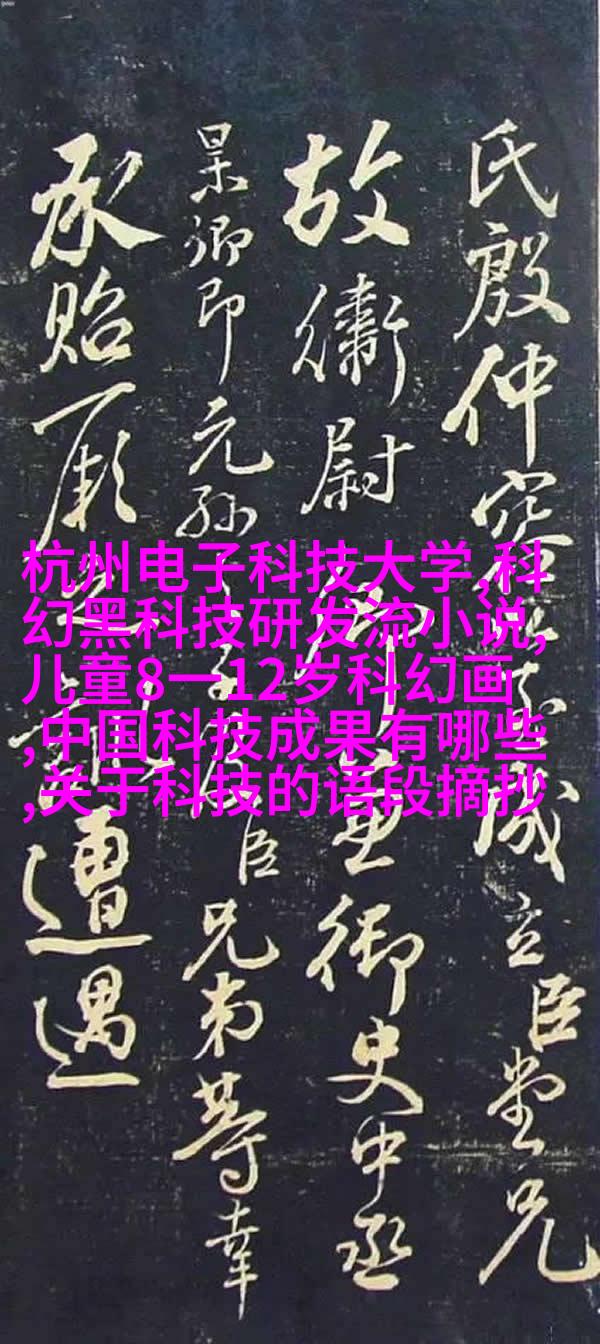 杭州电子科技大学,科
幻黑科技研发流小说,
儿童8一12岁科幻画
,中国科技成果有哪些
,关于科技的语段摘抄
氏殷仲容成立臣堂兄
故衛尉卿兼御史中丞
杲卿即元孫臣兄弟等幸
承貽厥遭遇